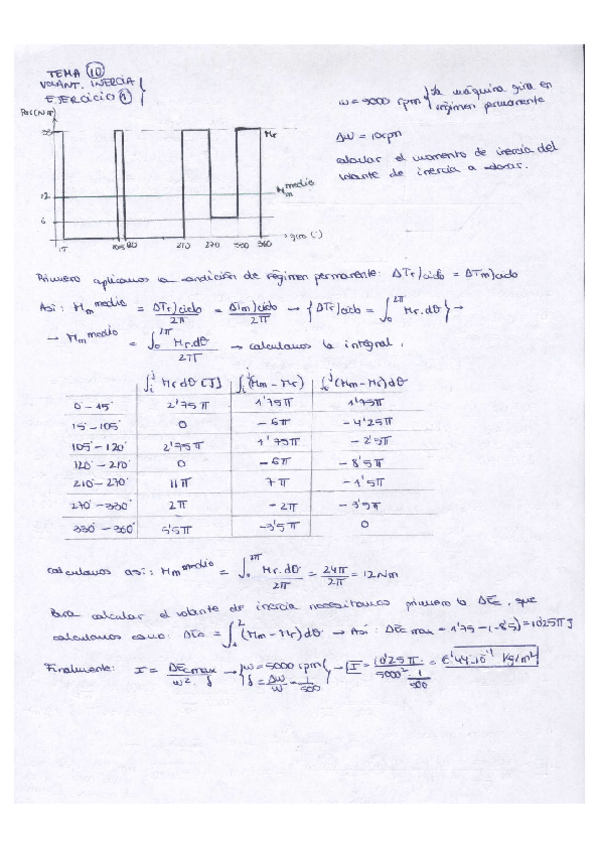 TEMA 10
VOLANT. INERCIA
EJERCICIO 1
w = 5000 rpm } la máquina gira en
régimen permanente
Δw = 10 rpm
calcular el momento de inercia del
volante de inercia a
Par(N·m)
33
12
6
Mr
Mm medio
15 105 120 210 270 330 360
giro (°)
Primero aplicamos la condición de régimen permanente: ΔTr)ciclo = ΔTm)ciclo
Así: Mm medio = ΔTr)ciclo / 2π = ΔTm)ciclo / 2π → { ΔTr)ciclo = ∫0 2π Mr.dθ } →
→ Mm medio = ∫0 2π Mr.dθ / 2π → calculamos la integral.
∫i j Mr dθ [J] ∫i j (Mm - Mr) ∫0 j (Mm - Mr)dθ
0 - 15° 2'75π 1'75π 1'75π
15 - 105° 0 -6π -4'25π
105° - 120° 2'75π 1'75π -2'5π
120° - 210° 0 -6π -8'5π
210° - 270° 11π 7π -1'5π
270° - 330° 2π -2π -3'5π
330° - 360° 5'5π -3'5π 0
calculamos así: Mm medio = ∫0 2π Mr.dθ / 2π = 24π / 2π = 12 Nm
Para calcular el volante de inercia necesitamos primero la ΔEc, que
calculamos como: ΔEc = ∫1 2 (Mm - Mr)dθ → Así: ΔEc max = 1'75 - (-8'5) = 10'25π J
Finalmente: I = ΔEc max / w². δ → { w = 5000 rpm δ = Δw / w = 1 / 500 } → I = 10'25π / 5000². 1/500 = 6'44·10⁻⁴ kg/m²